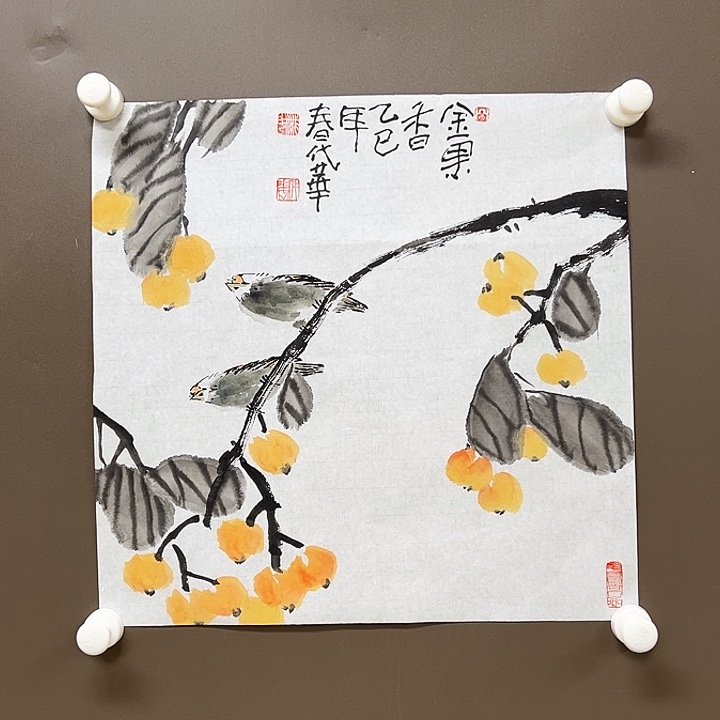 金果
香
乙巳
年
春代華